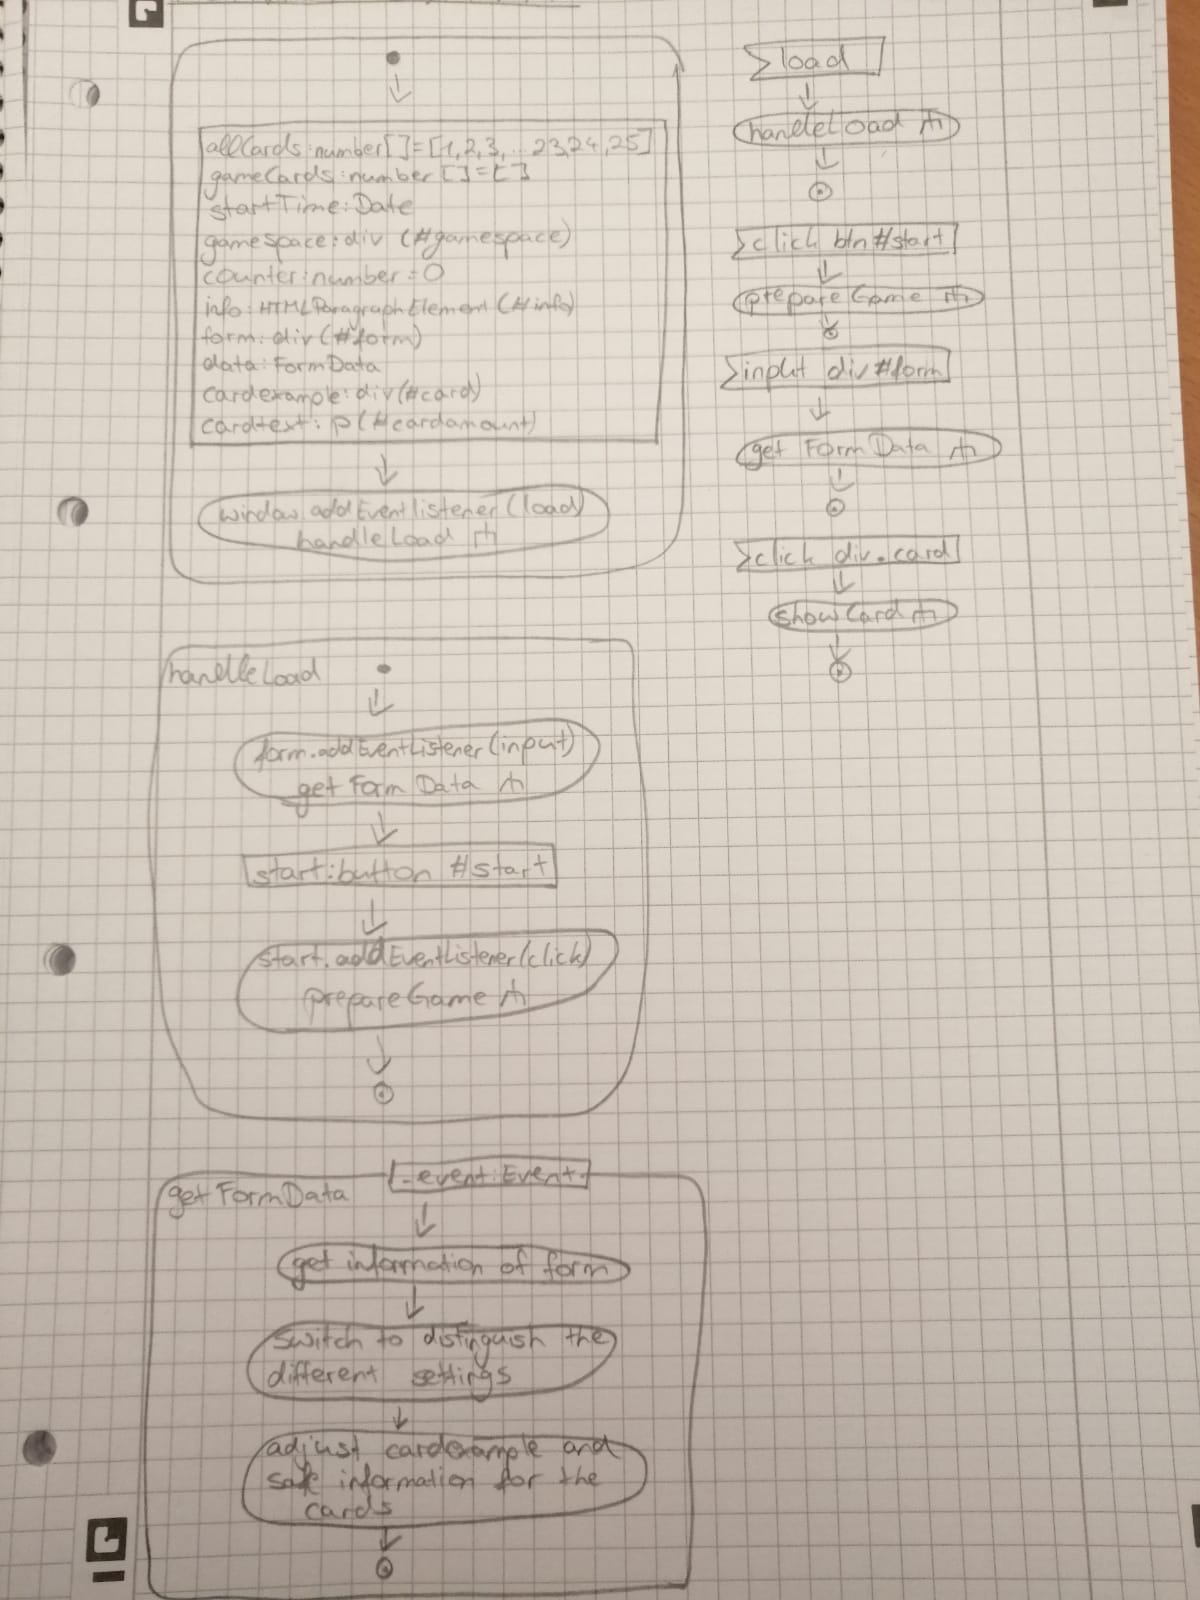 allCards:number[]=[1,2,3,...23,24,25]
gameCards:number[]=[]
startTime:Date
gamespace:div (#gamespace)
counter:number=0
info:HTMLParagraphElement(#info)
form:div(#form)
data:FormData
cardexample:div(#card)
cardtext:p(#cardamount)
window.addEventlistener(load)
handleLoad
handleLoad
form.addEventListener(input)
get Form Data
start:button #start
start.addEventListener(click)
prepareGame
getFormData
_event:Event
get information of form
switch to distinguish the
different settings
adjust cardexample and
safe information for the
cards
load
handleLoad
click btn#start
prepareGame
input div#form
get FormData
click div.card
showCard